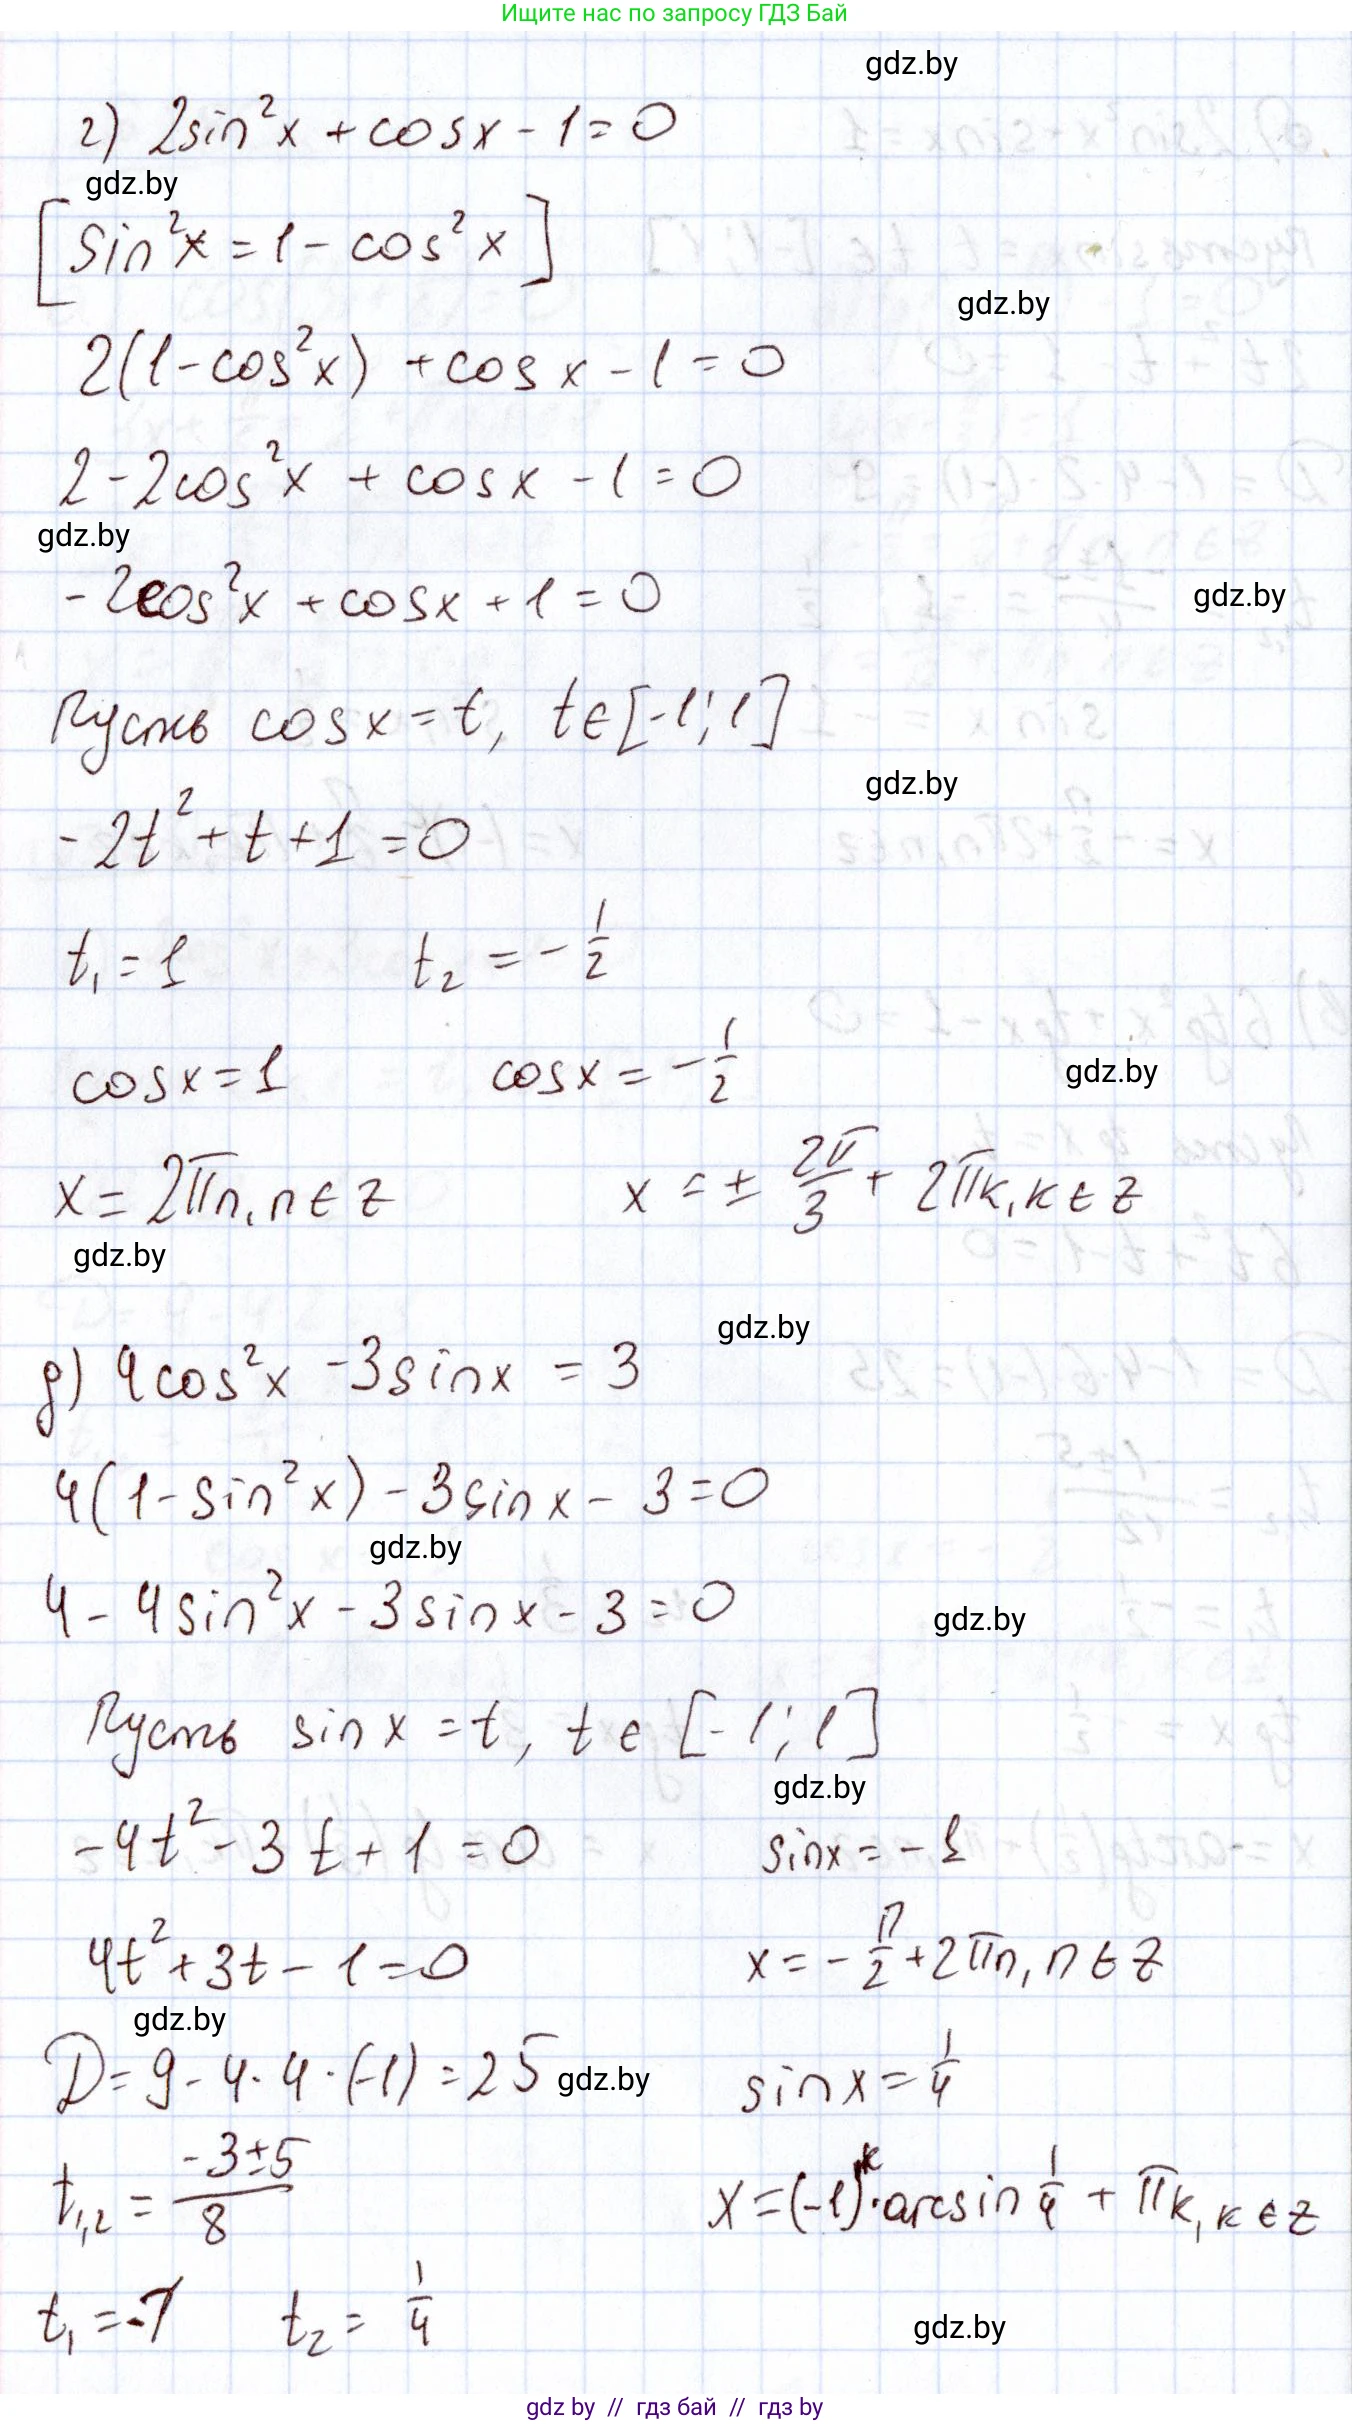 Ищите нас по запросу ГДЗ Бай
gdz.by
г) 2sin²x + cosx - 1 = 0
gdz.by
[sin²x = 1 - cos²x]
gdz.by
2(1 - cos²x) + cosx - 1 = 0
2 - 2cos²x + cosx - 1 = 0
gdz.by
-2cos²x + cosx + 1 = 0
gdz.by
Пусть cosx = t, t ∈ [-1; 1]
gdz.by
-2t² + t + 1 = 0
t₁ = 1 t₂ = -1/2
cosx = 1 cosx = -1/2
gdz.by
x = 2πn, n ∈ Z x = ± 2π/3 + 2πk, k ∈ Z
gdz.by
gdz.by
д) 4cos²x - 3sinx = 3
4(1 - sin²x) - 3sinx - 3 = 0
gdz.by
4 - 4sin²x - 3sinx - 3 = 0
gdz.by
Пусть sinx = t, t ∈ [-1; 1]
gdz.by
-4t² - 3t + 1 = 0 sinx = -1
4t² + 3t - 1 = 0 x = -π/2 + 2πn, n ∈ Z
gdz.by
D = 9 - 4 · 4 · (-1) = 25 gdz.by sinx = 1/4
t₁,₂ = (-3 ± 5)/8 x = (-1)ᵏ · arcsin 1/4 + πk, k ∈ Z
t₁ = -1 t₂ = 1/4
gdz.by
gdz by // гдз бай // гдз by